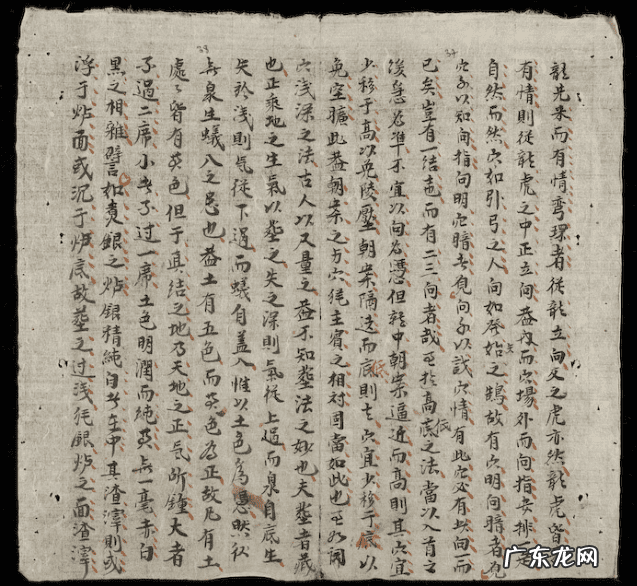 龍先來而有情彎環者從龍立向反之虎亦然龍虎皆
有情則從龍虎之中正立向蓋內而穴場外而向指安排定
自然而然穴如引弓之人向如發始之鵠故有穴明向暗者見
矢
穴可以知向指向明穴暗者見向可以識穴情有此穴必有此向而
已矣豈有一結而有二三向者哉至於高底之法當以入首之
低
後為準不宜以向為憑但龍中朝案逼近而高則其穴宜
少移于高以免陵壓朝案隔遠而底則穴宜少移于底以
免空曠此蓋朝案之方穴猶主賓之相對固當如此也至如開
穴淺深之法古人以尺量之蓋不知葬法之妙也夫葬者藏
也正乘地之生氣以葬之失之深則氣從上過而泉自底生
失於淺則氣從下過而蟻自蓋入惟以土色為憑然後
無泉生蟻入之忌也蓋土有五色而黃色為正故凡有土
處處皆有黃色但于真結之地乃天地之正氣所鍾大者
不過二席小者不過一席土色明潤而純黃無一毫赤白
黑之相雜譬如煮銀之炉銀精純白者在中其渣滓則或
浮于炉面或沉于炉底故葬之过淺猶銀炉之面渣滓
38
广东龙网